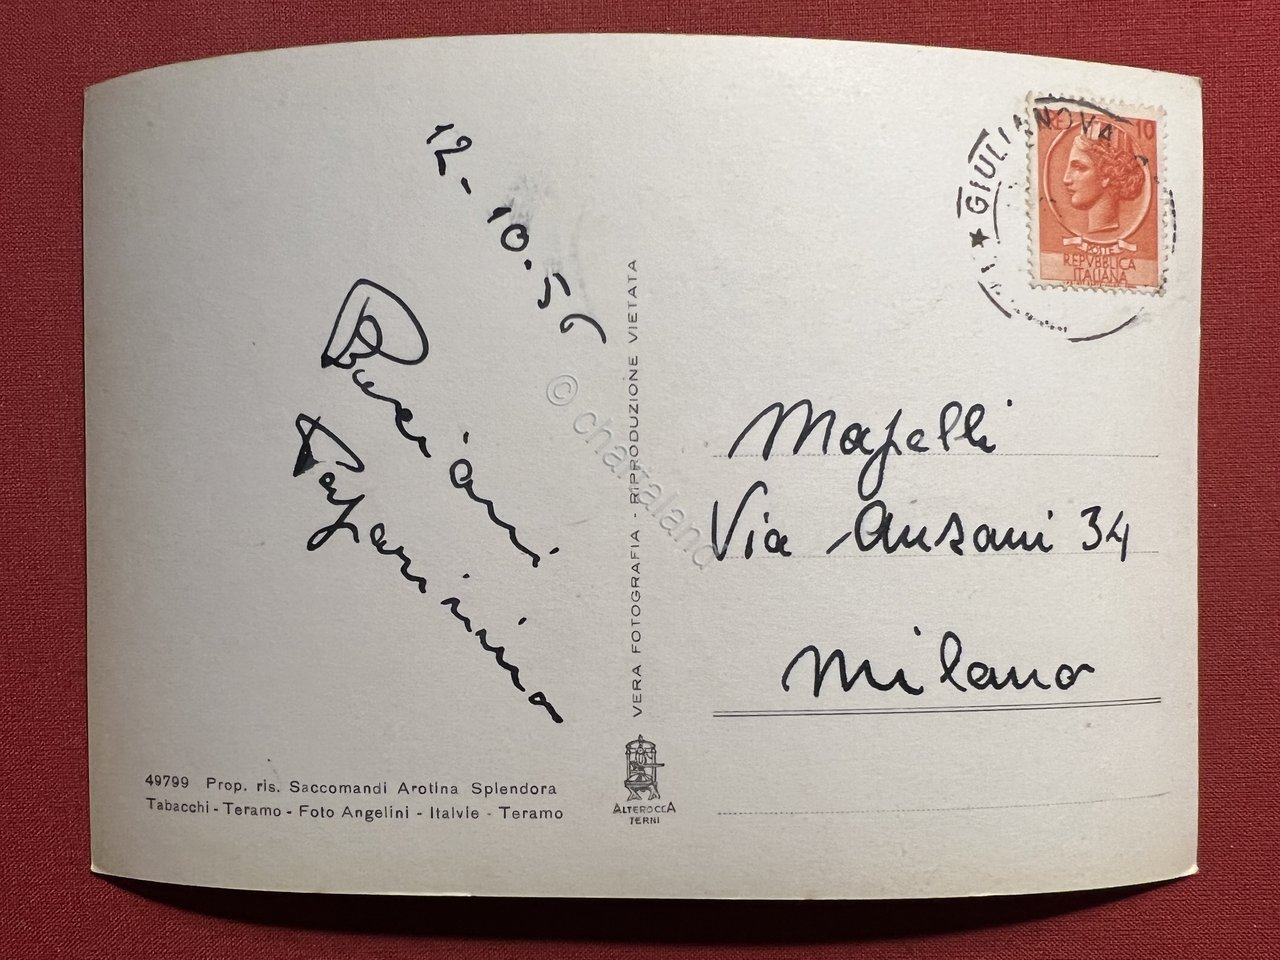 12-10-56
Baciani
Paparinino
49799 Prop. ris. Saccomandi Arotina Splendora
Tabacchi - Teramo - Foto Angelini - Italvie - Teramo
VERA FOTOGRAFIA - RIPRODUZIONE VIETATA
ALTEROCCA
TERNI
© chartaland
★ GIULIANOVA
10
POSTE
REPVBBLICA
ITALIANA
Mapelli
Via Anzani 34
Milano